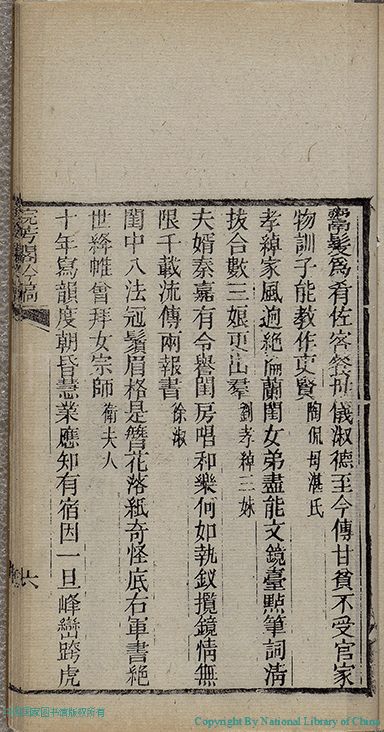 鬻髮爲肴佐客餐世儀淑德至今傳甘貧不受官家
物訓子能教作吏賢 陶侃母湛氏
孝綽家風迥絕倫蘭閨女弟盡能文鏡臺點筆詞清
拔合數三娘更出羣 劉孝綽三妹
夫婿秦嘉有令譽閨房唱和樂何如執釵攬鏡情無
限千載流傳兩報書 徐淑
閨中八法冠鬚眉格是簪花落紙奇怪底右軍書絕
世絳帷曾拜女宗師 衛夫人
十年寫韻度朝昏慧業應知有宿因一旦峰巒跨虎
閣吟稿
六
中国国家图书馆版权所有
Copyright By National Library of China